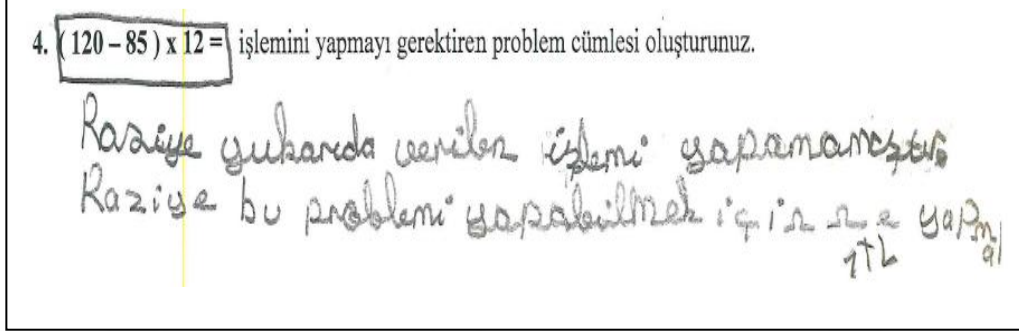 4. (120 – 85 ) x 12 = işlemini yapmayı gerektiren problem cümlesi oluşturunuz.
Raziye yukarıda verilen işlemi yapamamıştır
Raziye bu problemi yapabilmek için ne yapmal
ıtı